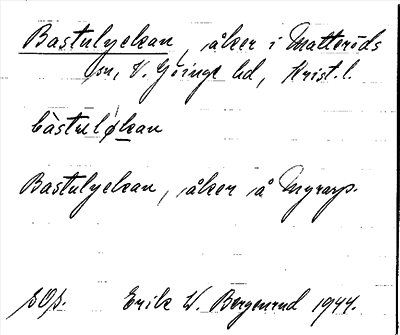 Bastulyckan, åker i Matteröds
sn, V. Göinge hd, Krist. l.
bàstulo̵kan
Bastulyckan, åker å Myrarp.
Erik W. Bergenrud 1944.